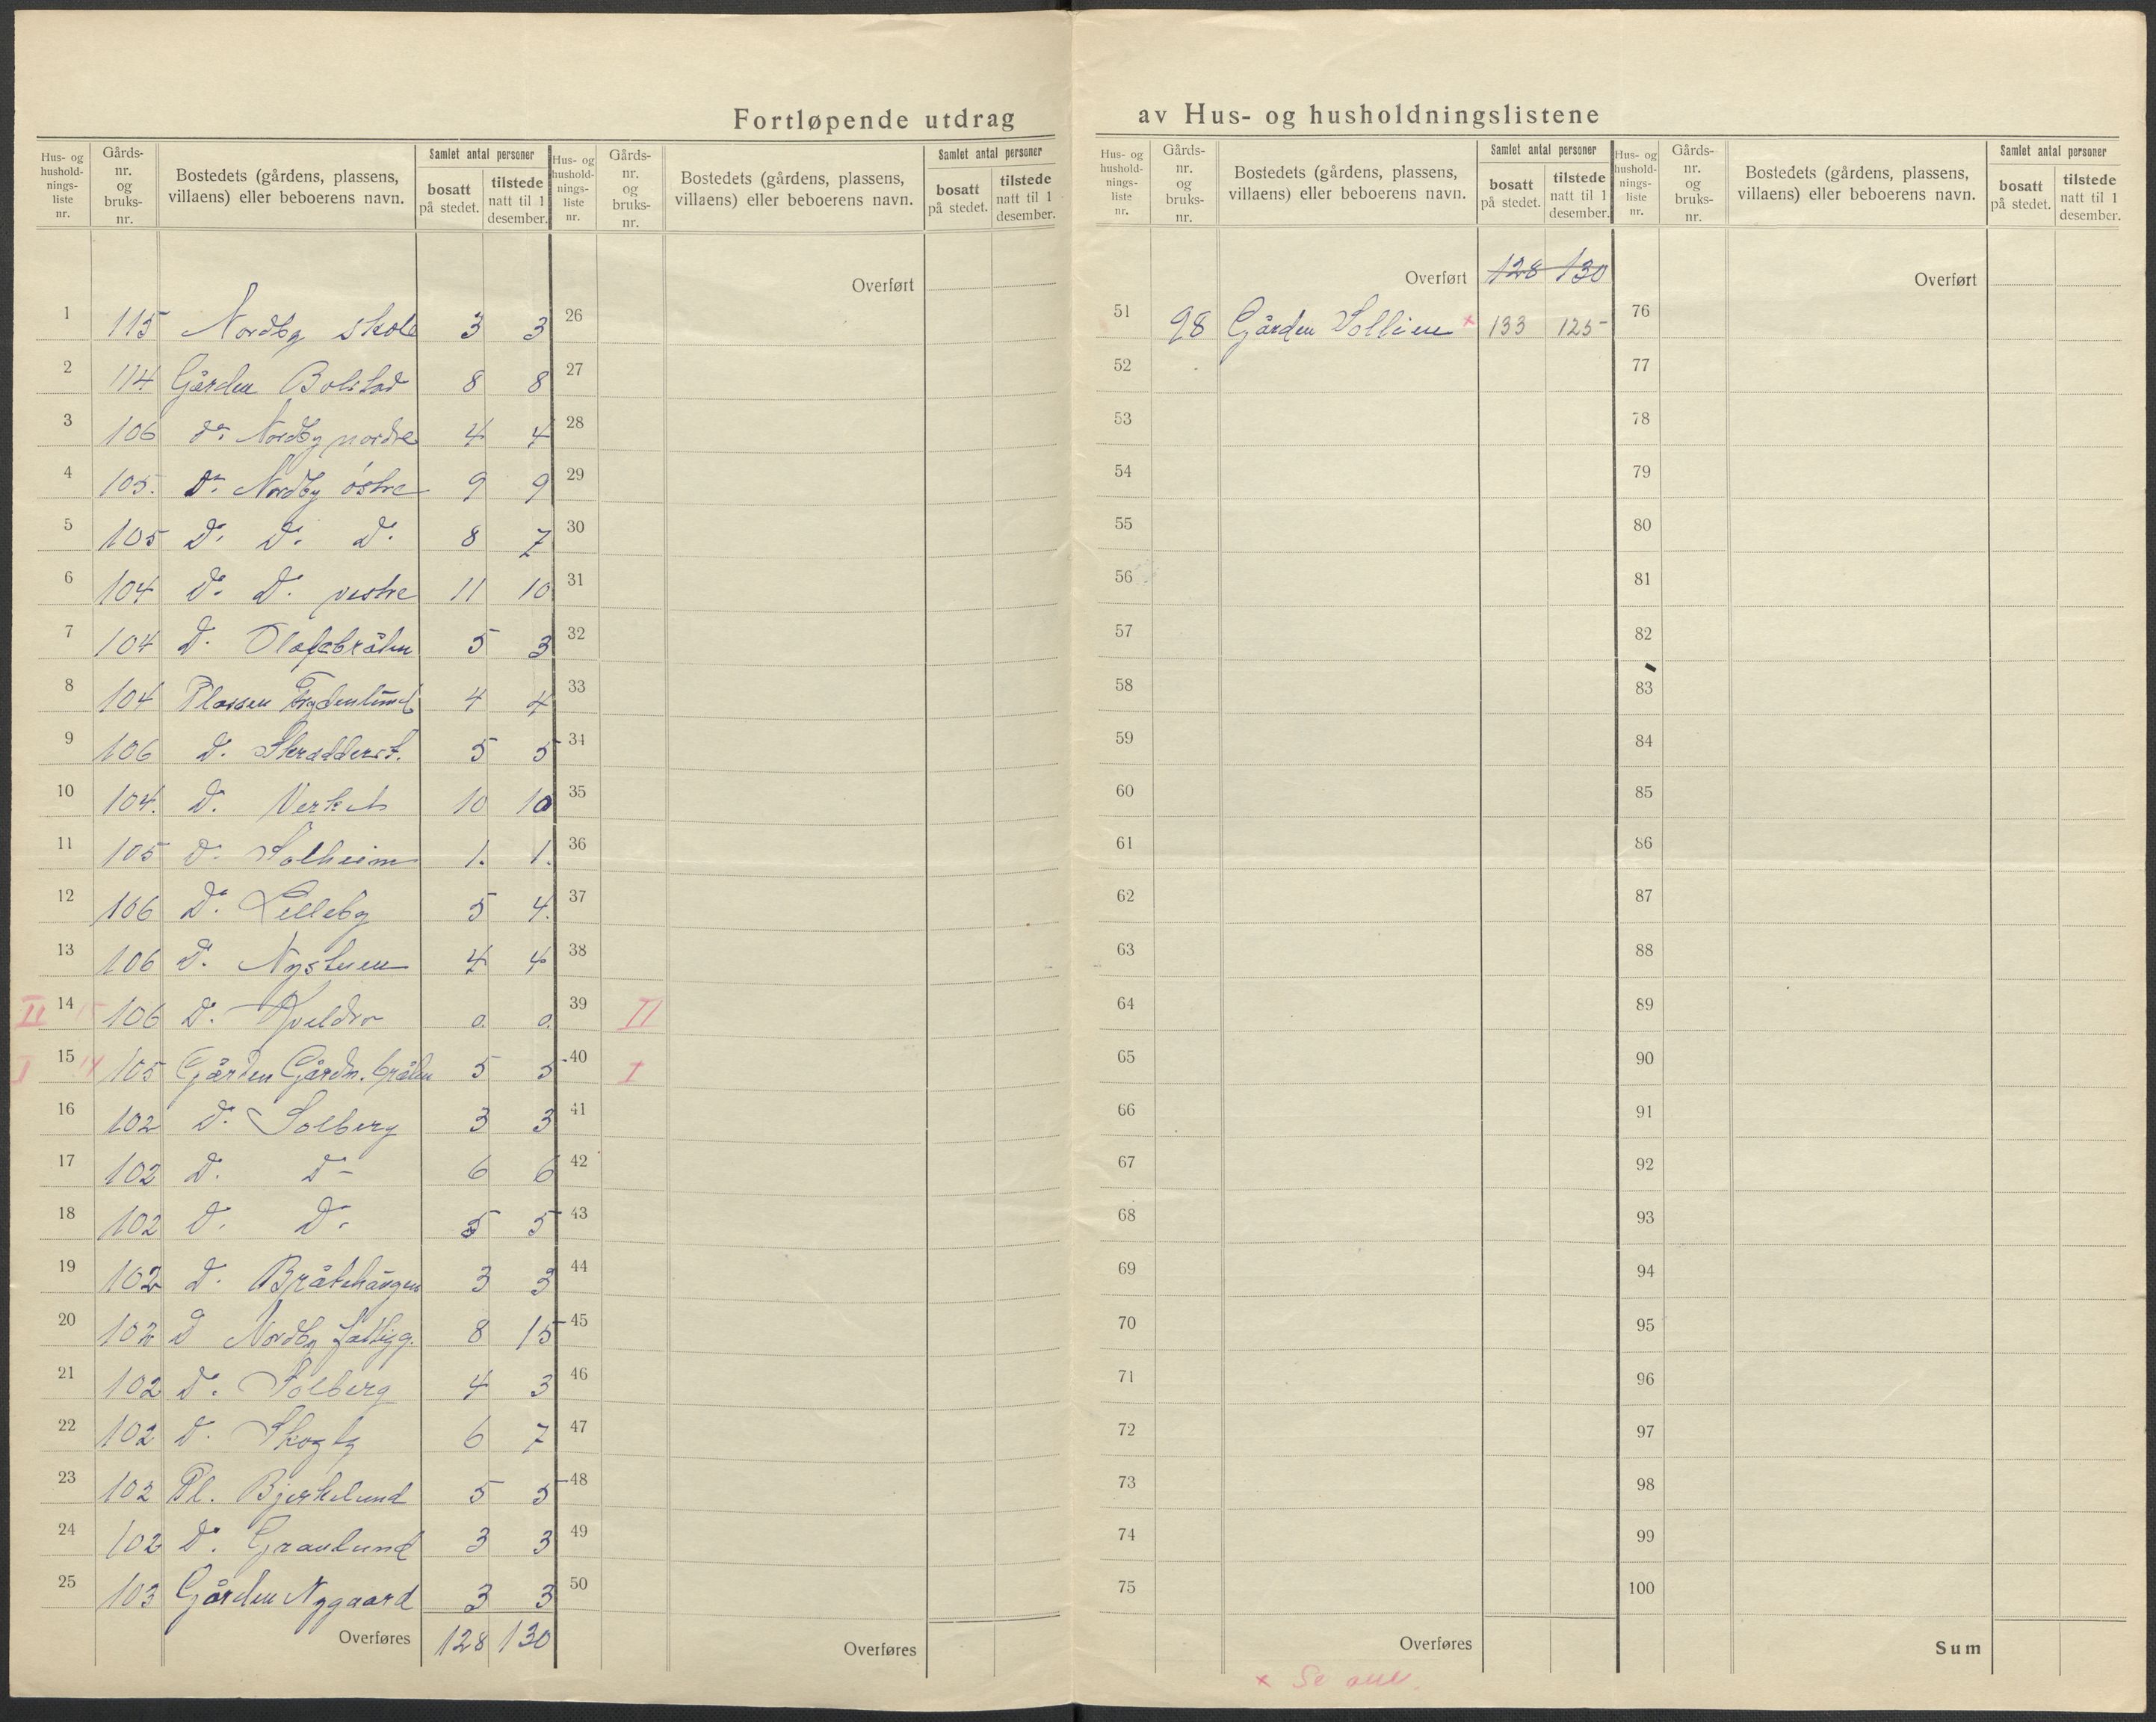 Fortløpende utdrag av Hus- og husholdningslistene
Hus- og hushold-nings-liste nr.
Gårds-nr. og bruks-nr.
Bostedets (gårdens, plassens, villaens) eller beboerens navn.
Samlet antal personer
bosatt på stedet.
tilstede natt til 1 desember.
Hus- og hushold-nings-liste nr.
Gårds-nr. og bruks-nr.
Bostedets (gårdens, plassens, villaens) eller beboerens navn.
Samlet antal personer
bosatt på stedet.
tilstede natt til 1 desember.
Hus- og hushold-nings-liste nr.
Gårds-nr. og bruks-nr.
Bostedets (gårdens, plassens, villaens) eller beboerens navn.
Samlet antal personer
bosatt på stedet.
tilstede natt til 1 desember.
Hus- og hushold-nings-liste nr.
Gårds-nr. og bruks-nr.
Bostedets (gårdens, plassens, villaens) eller beboerens navn.
Samlet antal personer
bosatt på stedet.
tilstede natt til 1 desember.
1 115 Nordby skole 3 3
2 114 Gården Bolstad 8 8
3 106 do. Nordby nordre 4 4
4 105. Do. Nordby østre 9 9
5 105 D. D. D. 8 7
6 104 Do. D. vestre 11 10
7 104 D. Olafsbråten 5 3
8 104 Plassen Frydenlund 4 4
9 106 D. Skradderst. 5 5
10 104. D. Verket 10 10
11 105 D. Solheim 1. 1.
12 106 D. Lilleby 5 4.
13 106 D. Nystuen 4 4
II 14 15 106 D. Kveldro 0. 0.
I 15 14 105 Gården Gårdn. bråten 5 5
16 102 D. Solberg 3 3
17 102 D. D- 6 6
18 102 D. D. 5 5
19 102 D. Bråtehaugen 3 3
20 102 D Nordby fattigg. 8 15
21 102 D. Solberg 4 3
22 102 D. Skogly 6 7
23 102 Pl. Bjerkelund 5 5
24 102 D. Granlund 3 3
25 103 Gården Nygaard 3 3
Overføres 128 130
Overført
26
27
28
29
30
31
32
33
34
35
36
37
38
39 II
40 I
41
42
43
44
45
46
47
48
49
50
Overføres
Overført 128 130
51 98 Gården Sollien x 133 125
52
53
54
55
56
57
58
59
60
61
62
63
64
65
66
67
68
69
70
71
72
73
74
75
Overføres
x Se anm.
Overført
76
77
78
79
80
81
82
83
84
85
86
87
88
89
90
91
92
93
94
95
96
97
98
99
100
Sum